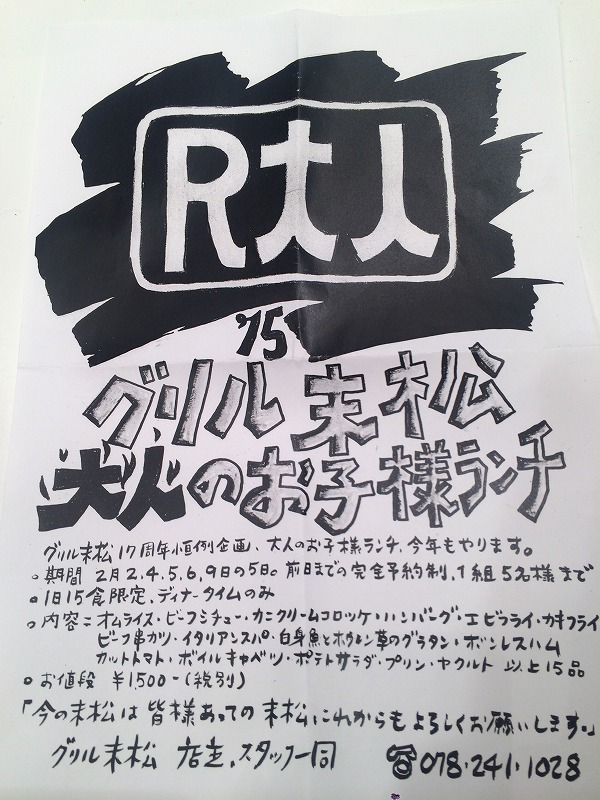 R大人
'15
グリル末松
大人のお子様ランチ
グリル末松17周年恒例企画、大人のお子様ランチ、今年もやります。
○期間 2月2.4.5.6.9日の5日。前日までの完全予約制、1組5名様まで
○1日15食限定、ディナータイムのみ
○内容=オムライス・ビーフシチュー・カニクリームコロッケ・ハンバーグ・エビフライ・カキフライ
ビーフ串カツ・イタリアンスパ・白身魚とホウレン草のグラタン・ボンレスハム
カットトマト・ボイルキャベツ・ポテトサラダ・プリン・ヤクルト 以上15品
○お値段 ¥1,500-(税別)
「今の末松は皆様あっての末松、これからもよろしくお願いします。」
グリル末松 店主、スタッフ一同 ☎078・241・1028